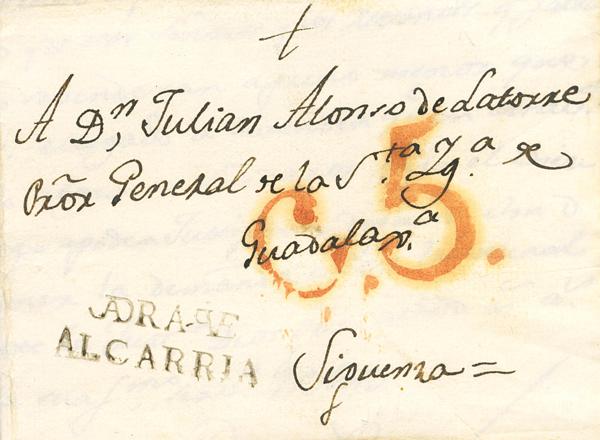 A Dn, Julian Alonso de Latorre
Prõr General de la Sta Yga de
Guadalaxa.
C.5.
JADRAQE
ALCARRIA
Siguenza =